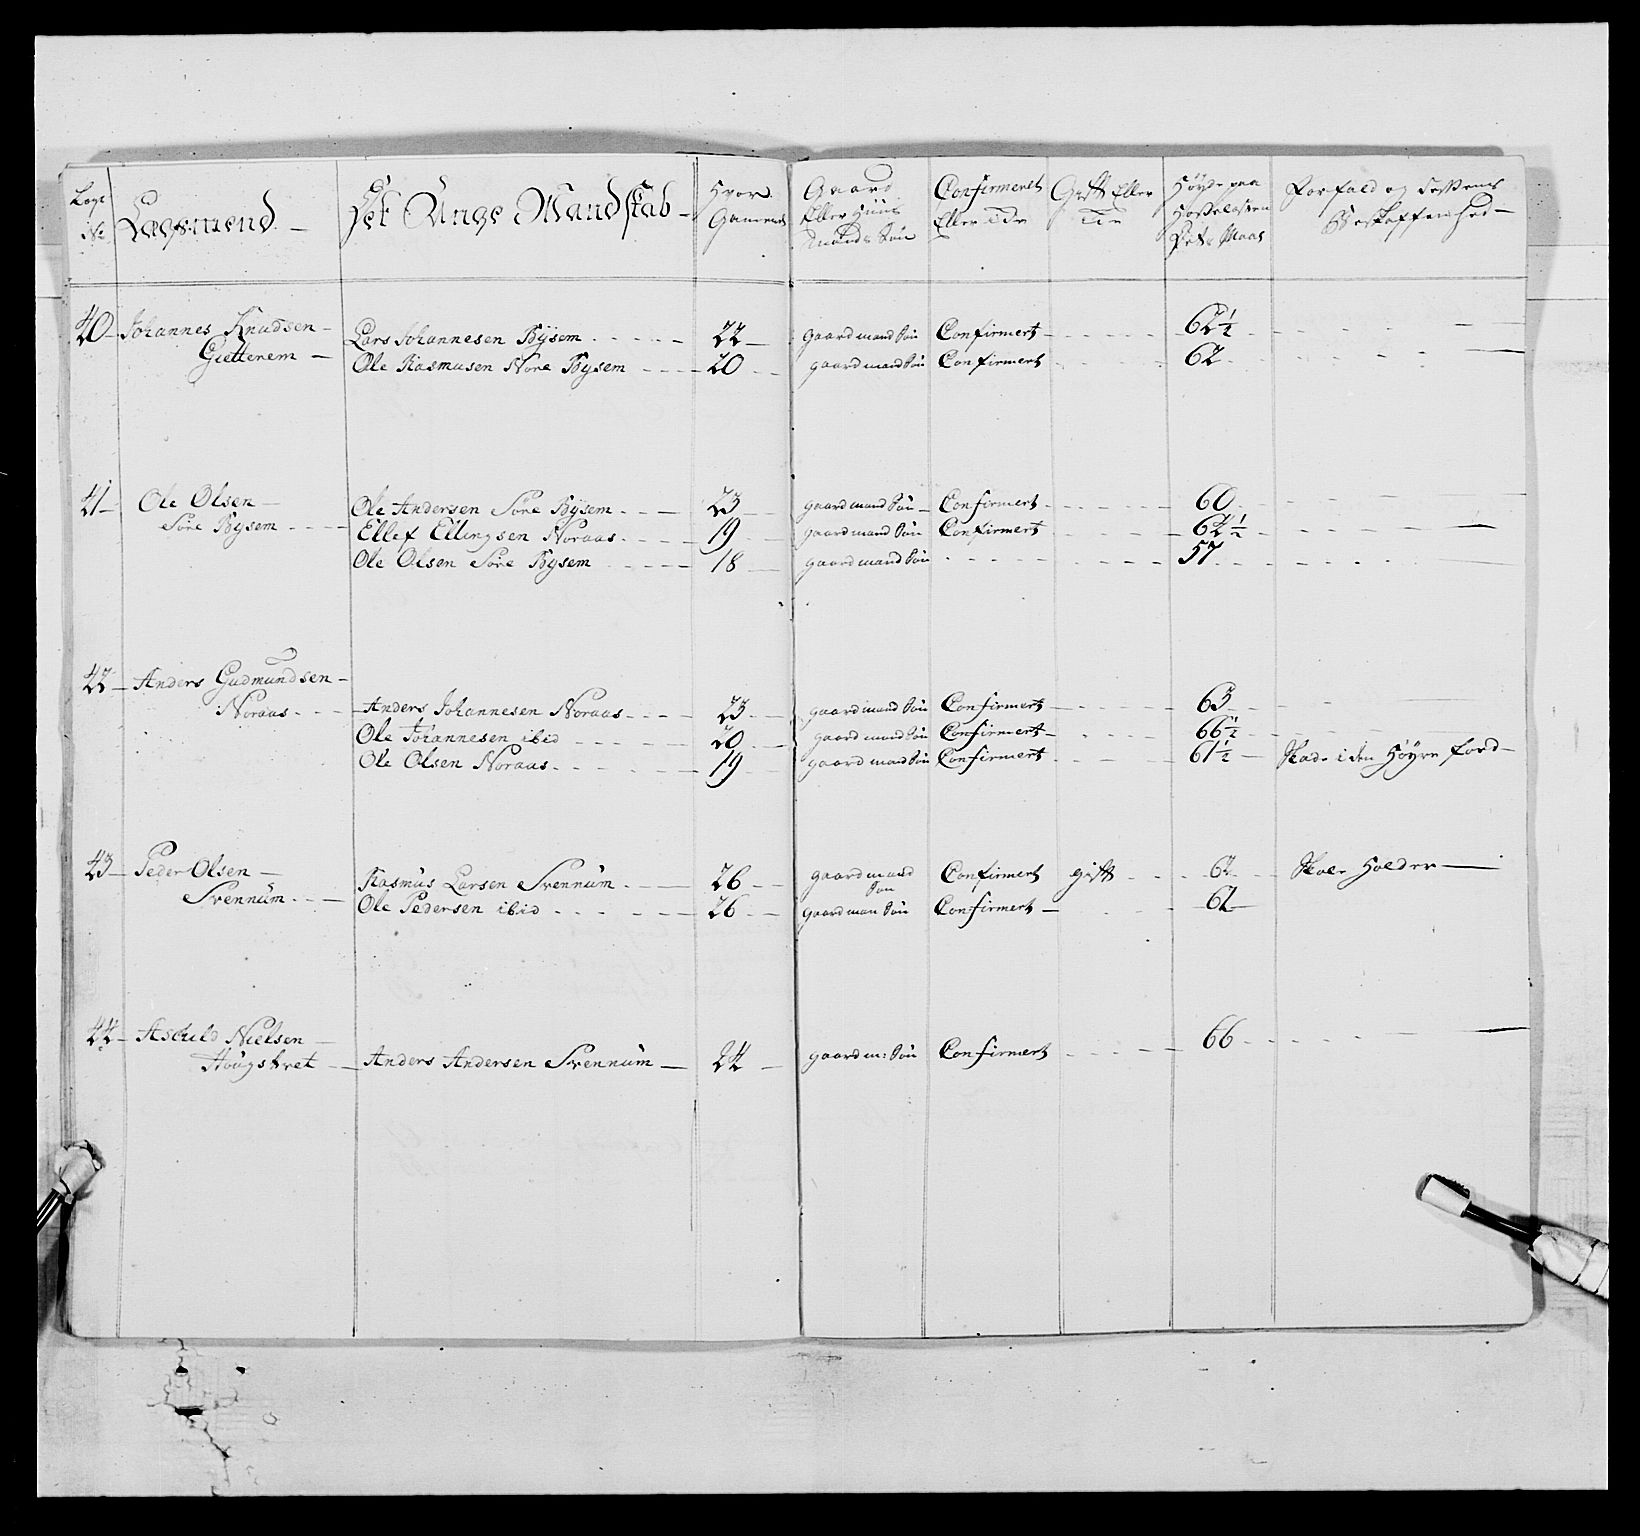 Legs No Lægsmend. — Det Unge Mandskab — Hvor Gammel Gaard Eller Huus mands Søn Confirmert Eller Ei Gift Eller Ei Høyde paa
Forfald og dessens Beskaffenhed —
40 — Johannes Knudsen — Lars Johannesen Bÿsem 22 — gaardmand Søn Confirmert 62½
Gietterem — Ole Rasmusen Nore Bysem 20 gaardmand Søn Confirmert 62
41 — Ole Olsen — Ole Andersen Søre Bysem 23 gaardmand Søn Confirmert 60
Søre Bysem Ellef Ellingsen Noraas 19 gaardmand Søn Confirmert 62½
Ole Olsen Søre Bysem 18 gaardmand Søn 57
42 — Anders Gudmundsen —
Noraas Anders Johannesen Noraas 23 gaardmand Søn Confirmert 63
Ole Johannesen ibid 20 gaardmand Søn Confirmert 66½
Ole Olsen Noraas 19 gaardmand Søn Confirmert 61½ Skade i den Høyre
43 — Peder Olsen — Rasmus Larsen Svennüm 26 gaardmand Søn Confirmert gift 62 Skole Holder
Svennüm Ole Pedersen ibid 26 gaardman Søn Confirmert 62
44 — Aschild Nielsen 66
Höugstvet Anders Andersen Svennüm — 24 gaardm: Søn Confirmert